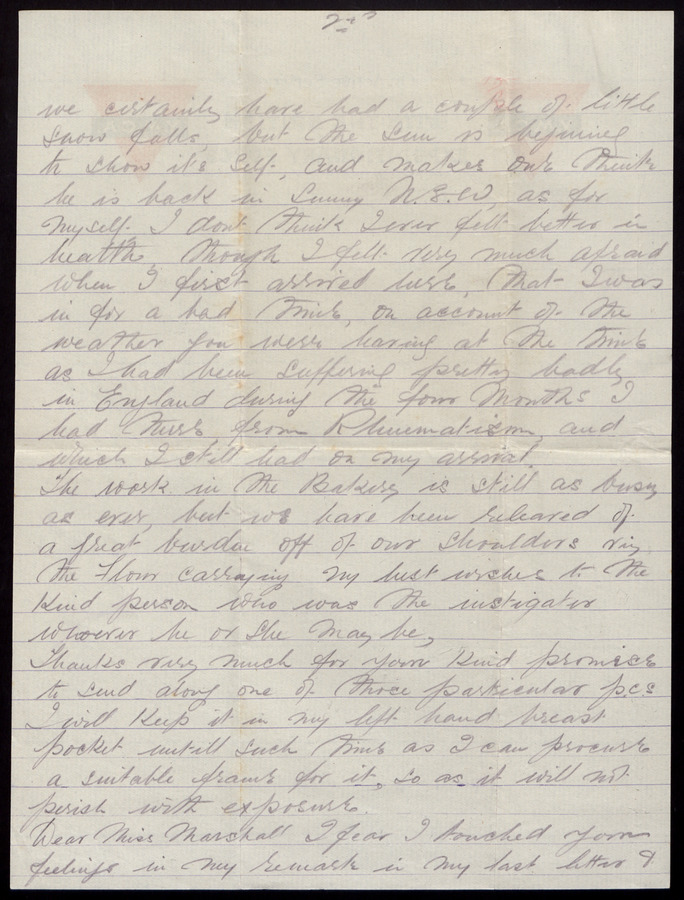 2nd
we certainly have had a couple of little
snow falls, but the sun is begining
to show it's self, and makes one think
he is back in sunny N.S.W, as for
myself I dont think I ever felt better in
health, though I felt very much afraid
when I first arrived here, that I was
in for a bad time, on account of the
weather you were having at the time
as I had been suffering pretty badly
in England during the four Months I
had there from Rhuematism, and
which I still had on my arrival.
The work in the Bakery is still as busy
as ever, but we have been releared of
a great burden off of our shoulders viz
the Flour carrying my best wishes to the
Kind person who was the instigator
whoever he or she may be,
Thanks very much for your Kind promise
to send along one of those particular p.c.s
I will Keep it in my left hand breast
pocket untill such time as I can procure
a suitable frame for it, so as it will not
perish with exposure.
Dear Miss Marshall I fear I touched your
feelings in my remark in my last letter &